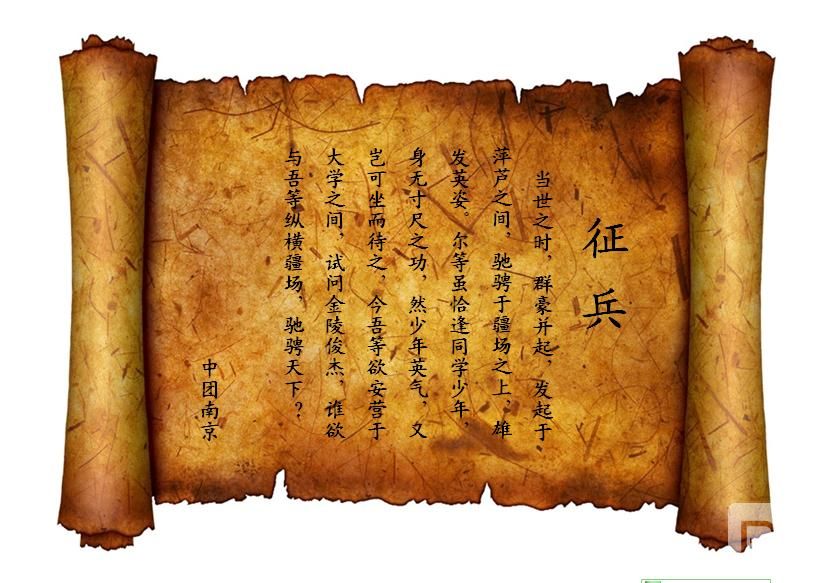 征兵
当世之时，群豪并起，发起于
萍芦之间，驰骋于疆场之上，雄
发英姿。尔等虽恰逢同学少年，
身无寸尺之功，然少年英气，又
岂可坐而待之，今吾等欲安营于
大学之间，试问金陵俊杰，谁欲
与吾等纵横疆场，驰骋天下？
中团南京